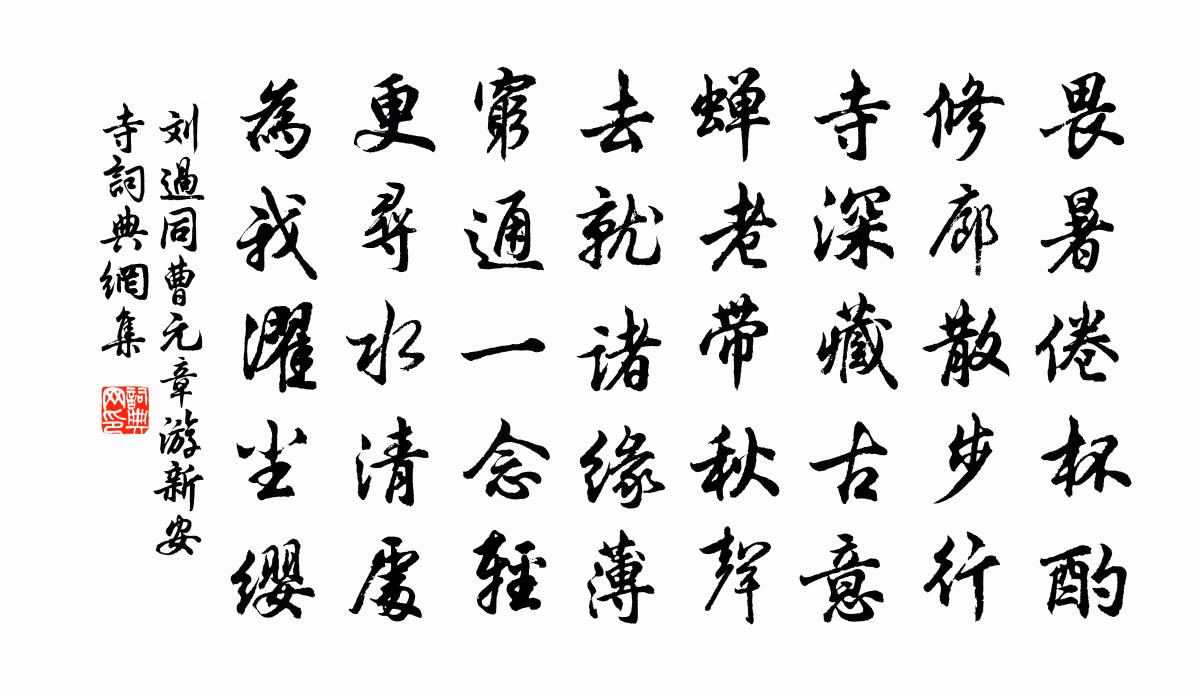 畏暑倦杯酌
修廊散步行
寺深藏古意
蝉老带秋聲
去就诸缘薄
窮通一念輕
更尋水清處
為我濯尘缨
刘過同曹元章游新安
寺詞典網集
詞典
网印